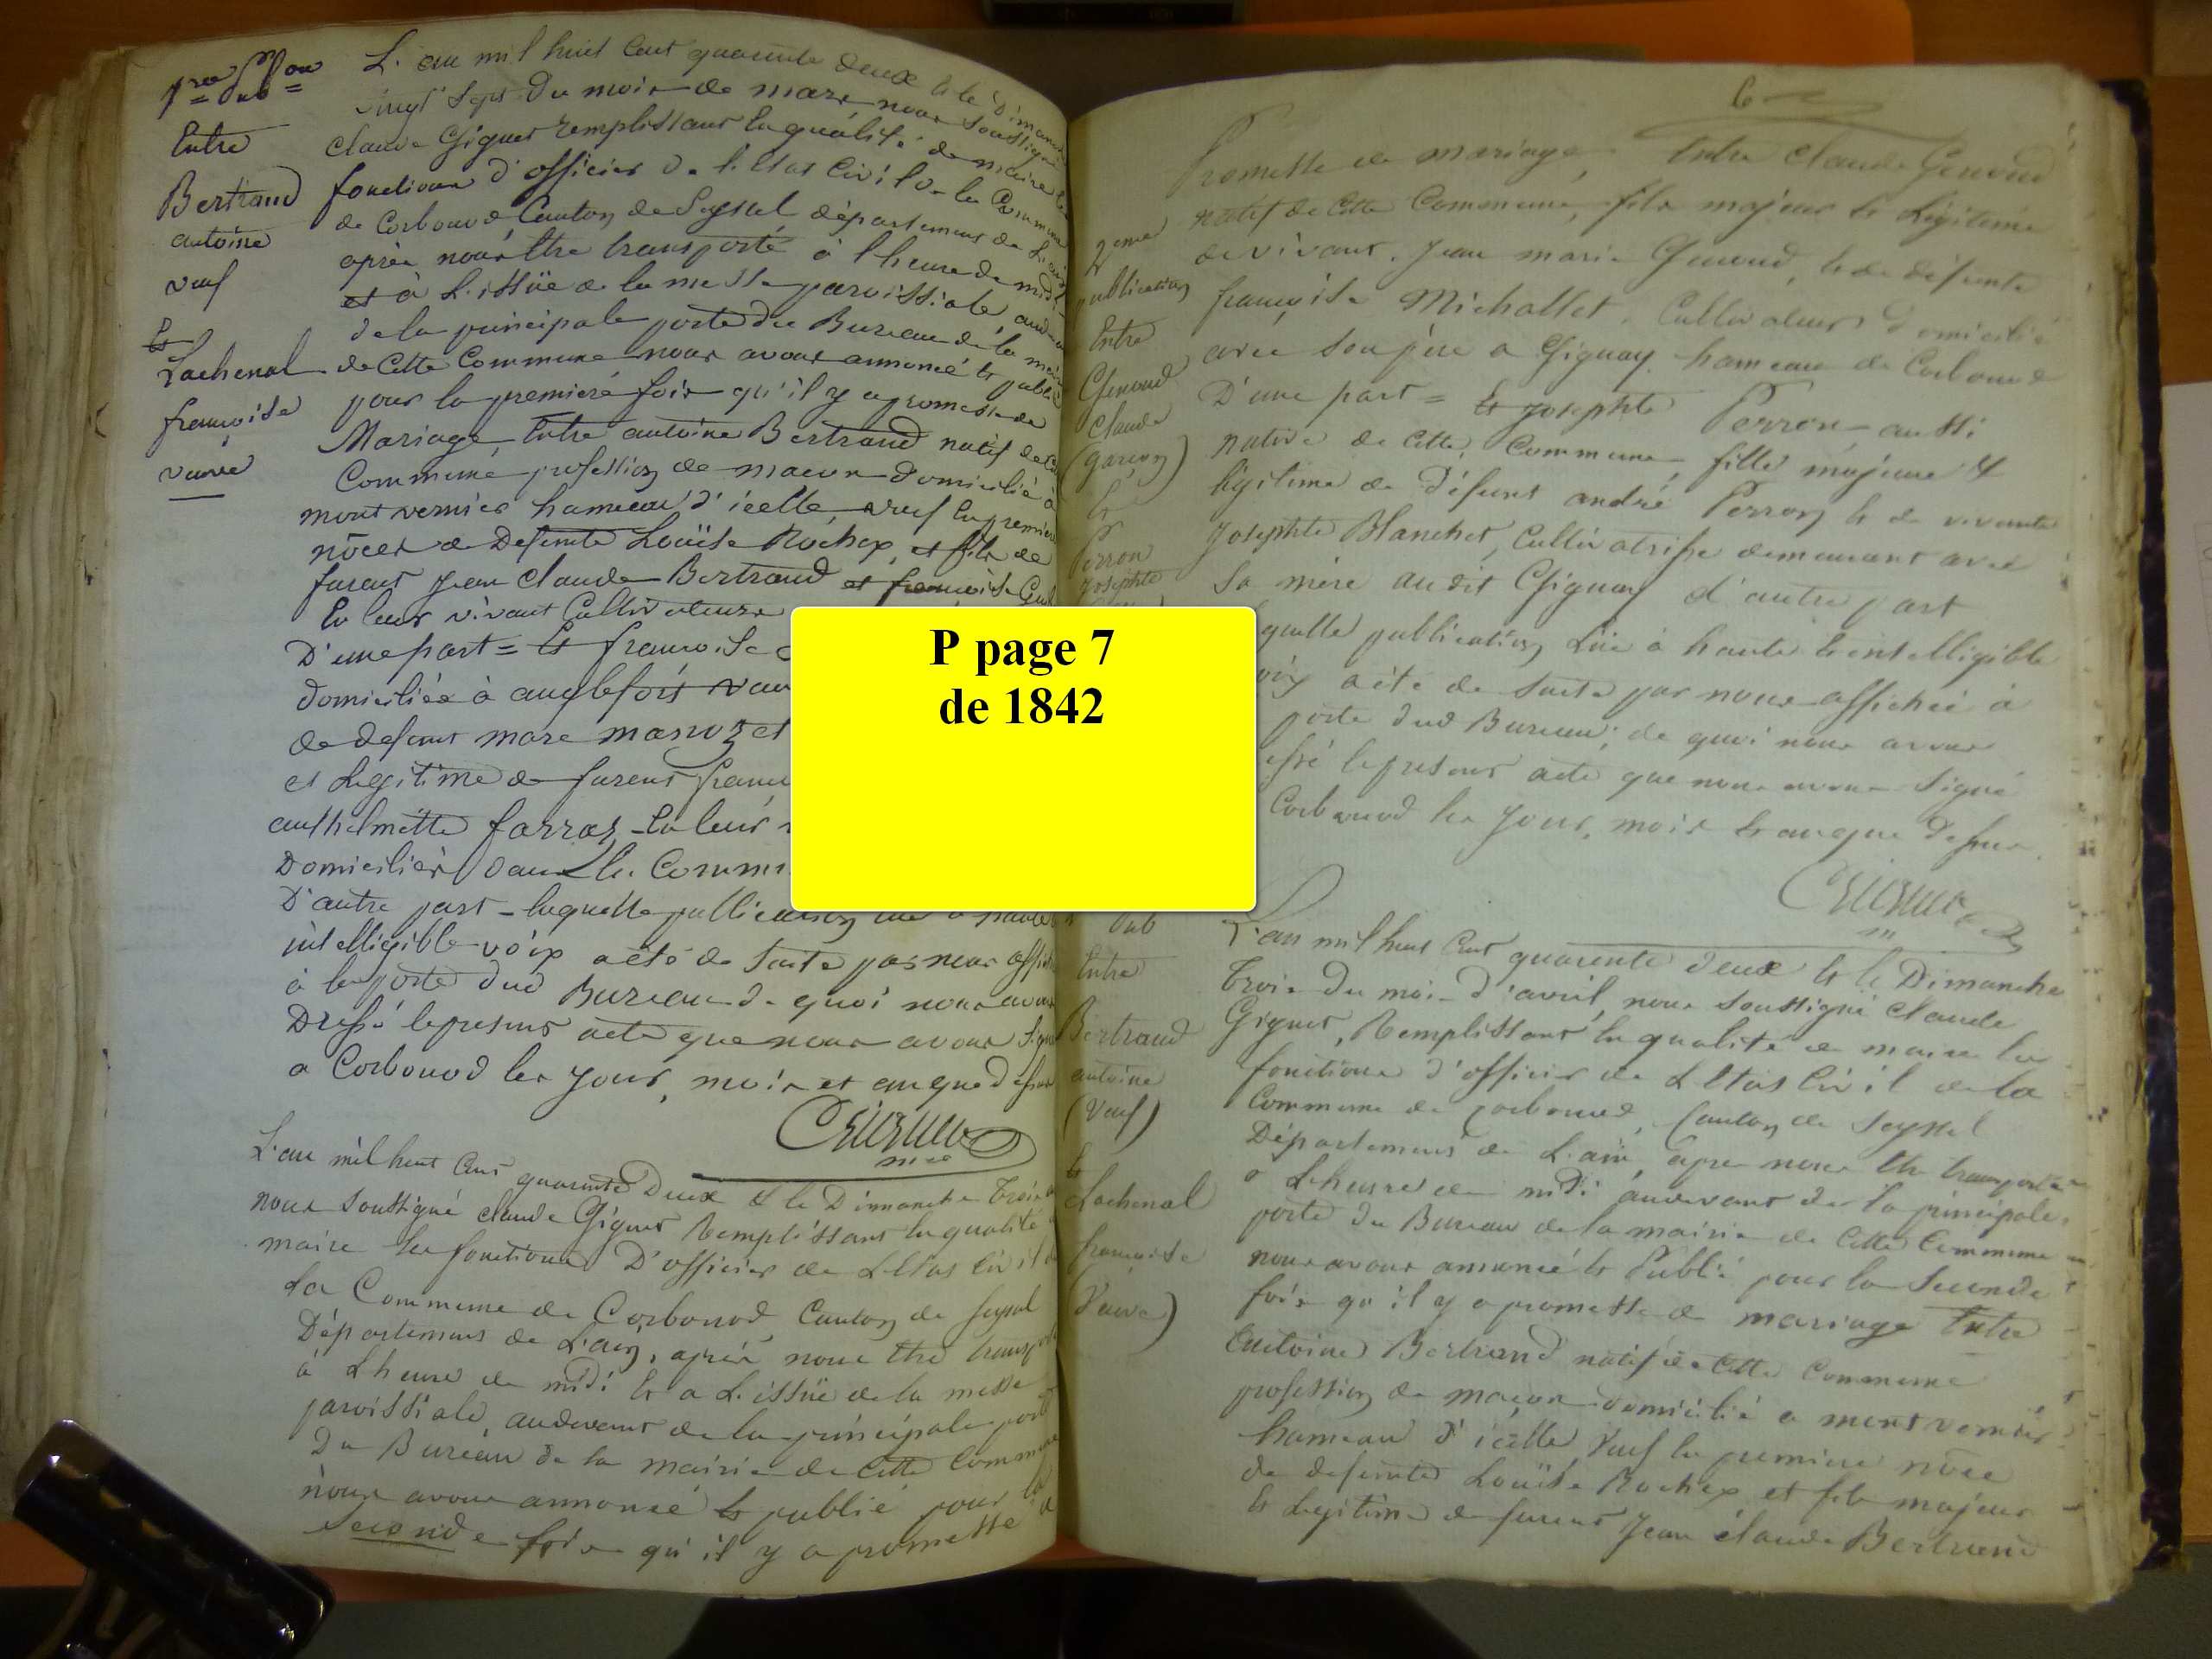 1re Pub on
Entre
Bertrand
antoine
veuf
et
Lachenal
françoise
veuve
L'an mil huit cent quarante deux et le Dimanche
vingt sept du mois de mars, nous soussigné
Claude Giguet remplissant la qualité de maire les
fonctions d'officier de l'Etat Civil de la Commune
de Corbonod, Canton de Seyssel département de L'ain
après nous être transporté à l'heure de midi
et à L'issüe de la messe paroissiale, au
de la principale porte du Bureau de la mairie
de Cette Commune nous avons annoncé et publié
pour la premiere fois qu'il y a promesse de
Mariage Entre antoine Bertrand natif de
Commune profession de macon domicilié à
montvernier hameau d'icelle, veuf En premiere
nôces de Defunte Louïse Rochex, et fils de
furent Jean Claude Bertrand et françoise
En leur vivant Cultivateurs
D'une part = Et françoise
domiciliée à anglefort
de defunt marc et
et Legitime de furent
anthelmette farraz En leur
Domiciliés dans la Comm
D'autre part - laquelle publication lue à haute
intelligible voix a été de suite par nous
à la porte dud Bureau de quoi nous avons
Dressé le present acte que nous avons signé
a Corbonod les jour, mois et an que dessus
Giguet
mre
L'an mil huit cent quarante Deux et le Dimanche trois
nous soussigné claude Giguet Remplissant la qualité
maire les fonctions D'officier de L'Etat Civil de
La Commune de Corbonod, Canton de Seyssel
Département de L'ain, après nous être transporté
à L'heure de midi et a L'issüe de la messe
paroissiale, audevant de la principale porte
Du Bureau de la mairie de Cette Commune
nous avons annoncé et publié pour la
Seconde fois qu'il y a promesse
P page 7
de 1842
6
2eme
publication
Entre
Genoud
Claude
(garçon)
et
Perron
Josephte
Promesse de mariage, Entre Claude Genoud
natif de Cette Commune, fils majeur et Légitime
de vivant Jean marie Genoud, et de défunte
françoise Michallet, Cultivateur domicilié
avec son père a Gignay hameau de Corbonod
D'une part = Et Josephte Perron, aussi
native de Cette Commune, fille majeure &
légitime de défunt andré Perron et de vivante
Josephte Blanchet, Cultivatrisse demeurant avec
sa mère audit Gignay d'autre part
quelle publication Lüe à haute et intelligible
a été de suite par nous affichée à
porte dud Bureau; de quoi nous avons
le present acte que nous avons signé
Corbonod les jour, mois et an que dessus.
Giguet
m
Pub
Entre
Bertrand
antoine
(Veuf)
et
Lachenal
françoise
(Veuve)
L'an mil huit Cent quarante deux et le Dimanche
trois du mois d'avril, nous soussigné Claude
Giguet, Remplissant la qualité de maire les
fonctions d'officier de L'Etat Civil de la
Commune de Corbonod, Canton de Seyssel
Département de L'ain, après nous être transporté
a L'heure de midi audevant de la principale
porte du Bureau de la mairie de Cette Commune
nous avons annoncé et Publié pour la Seconde
fois qu'il y a promesse de mariage Entre
Antoine Bertrand natif de Cette Commune
profession de maçon domicilié a montvernier
hameau d'icelle, Veuf En premiere nôce
de defunte Louïse Rochex et fils majeur
et Legitime de furent Jean claude Bertrand